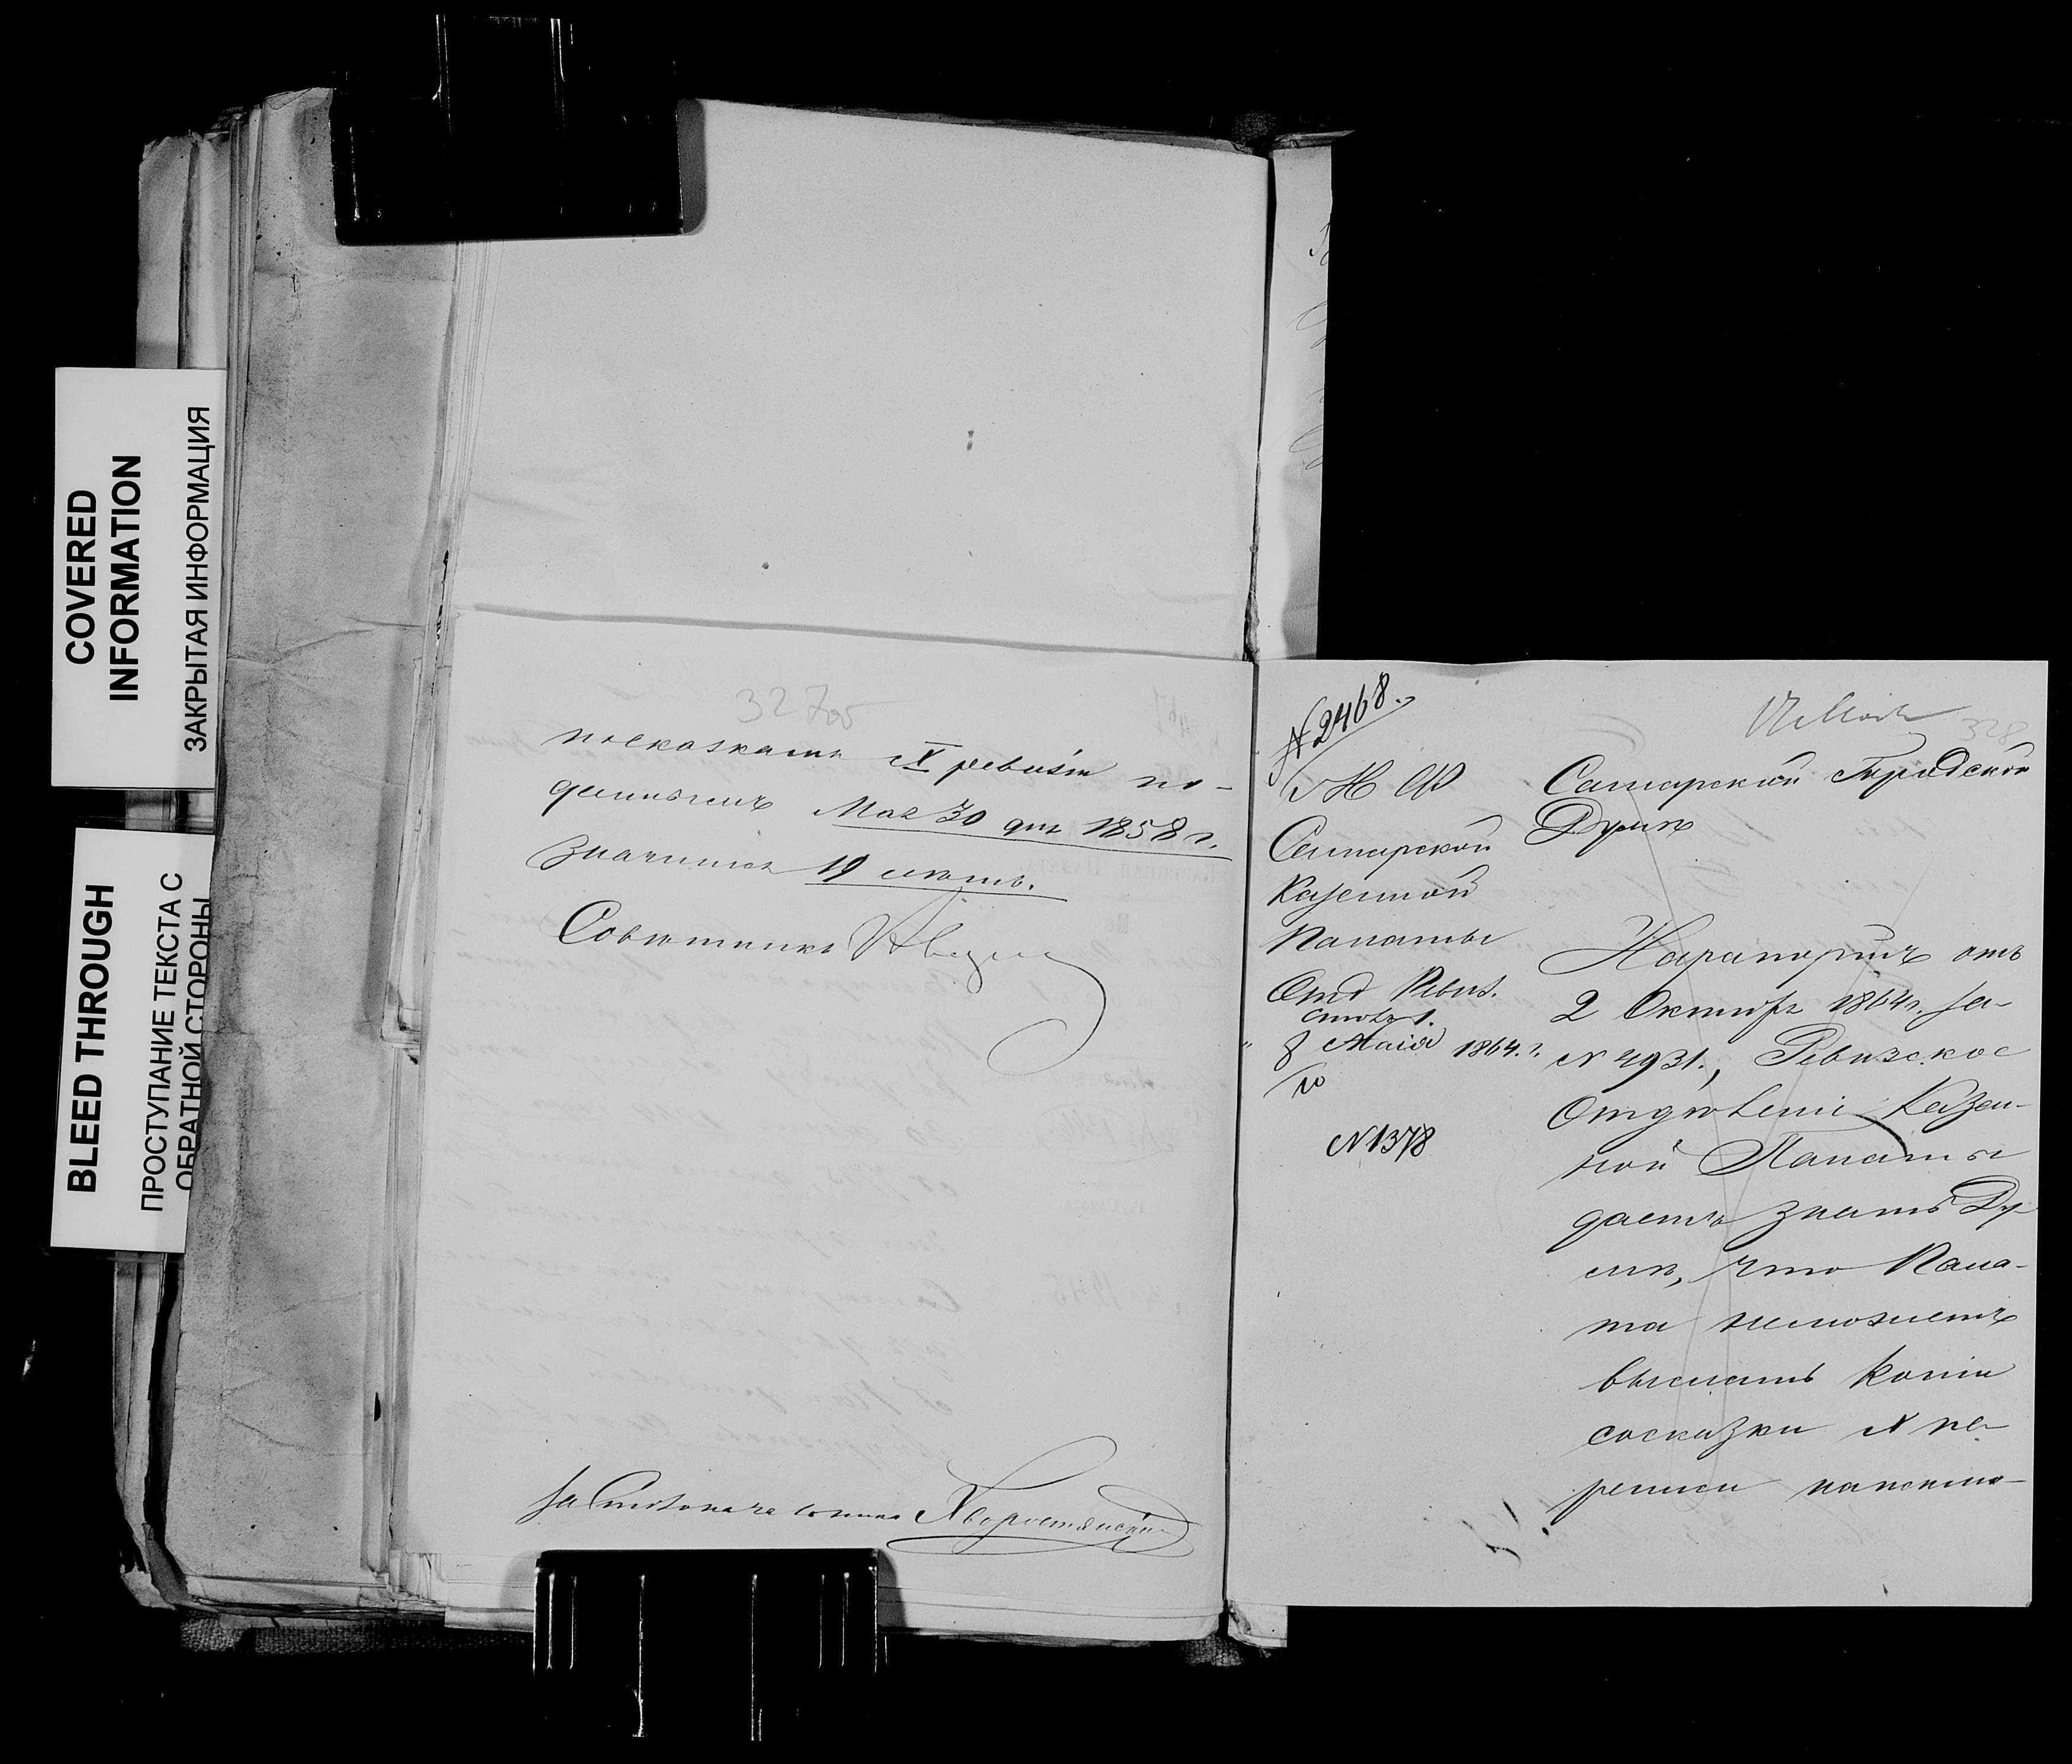 COVERED
INFORMATION
ЗАКРЫТАЯ ИНФОРМАЦИЯ
BLEED THROUGH
ПРОСТУПАНИЕ ТЕКСТА С
ОБРАТНОЙ СТОРОНЫ
327об
посказкамъ X ревизіи по-
даннымъ Мая 30 дня 1858 г.
значится 19 летъ.
Советникъ
За Столоначальника Хворостянскій
№ 2468.
М Ф
Самарской
Казенной
Палаты
Отд Ревиз.
столъ 1.
8 Маія 1864. г.
№ 1378
328
Самарской Городской
Думе
На рапортъ отъ
2 Октября 1864 г. за
№ 4931., Ревизское
Отделеніе Казен-
ной Палаты
даетъ знать Ду
ме, что Пала-
та неможетъ
выслать копіи
соскаски X пе-
реписи